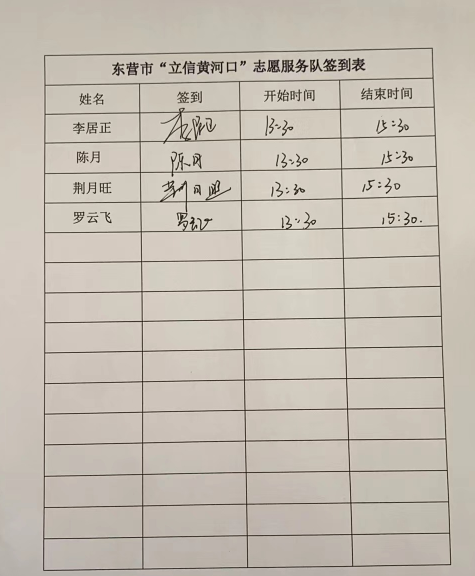 东营市“立信黄河口”志愿服务队签到表
姓名 签到 开始时间 结束时间
李居正 李居正 13:30 15:30
陈月 陈月 13:30 15:30
荆月旺 荆月旺 13:30 15:30
罗云飞 罗云飞 13:30 15:30.